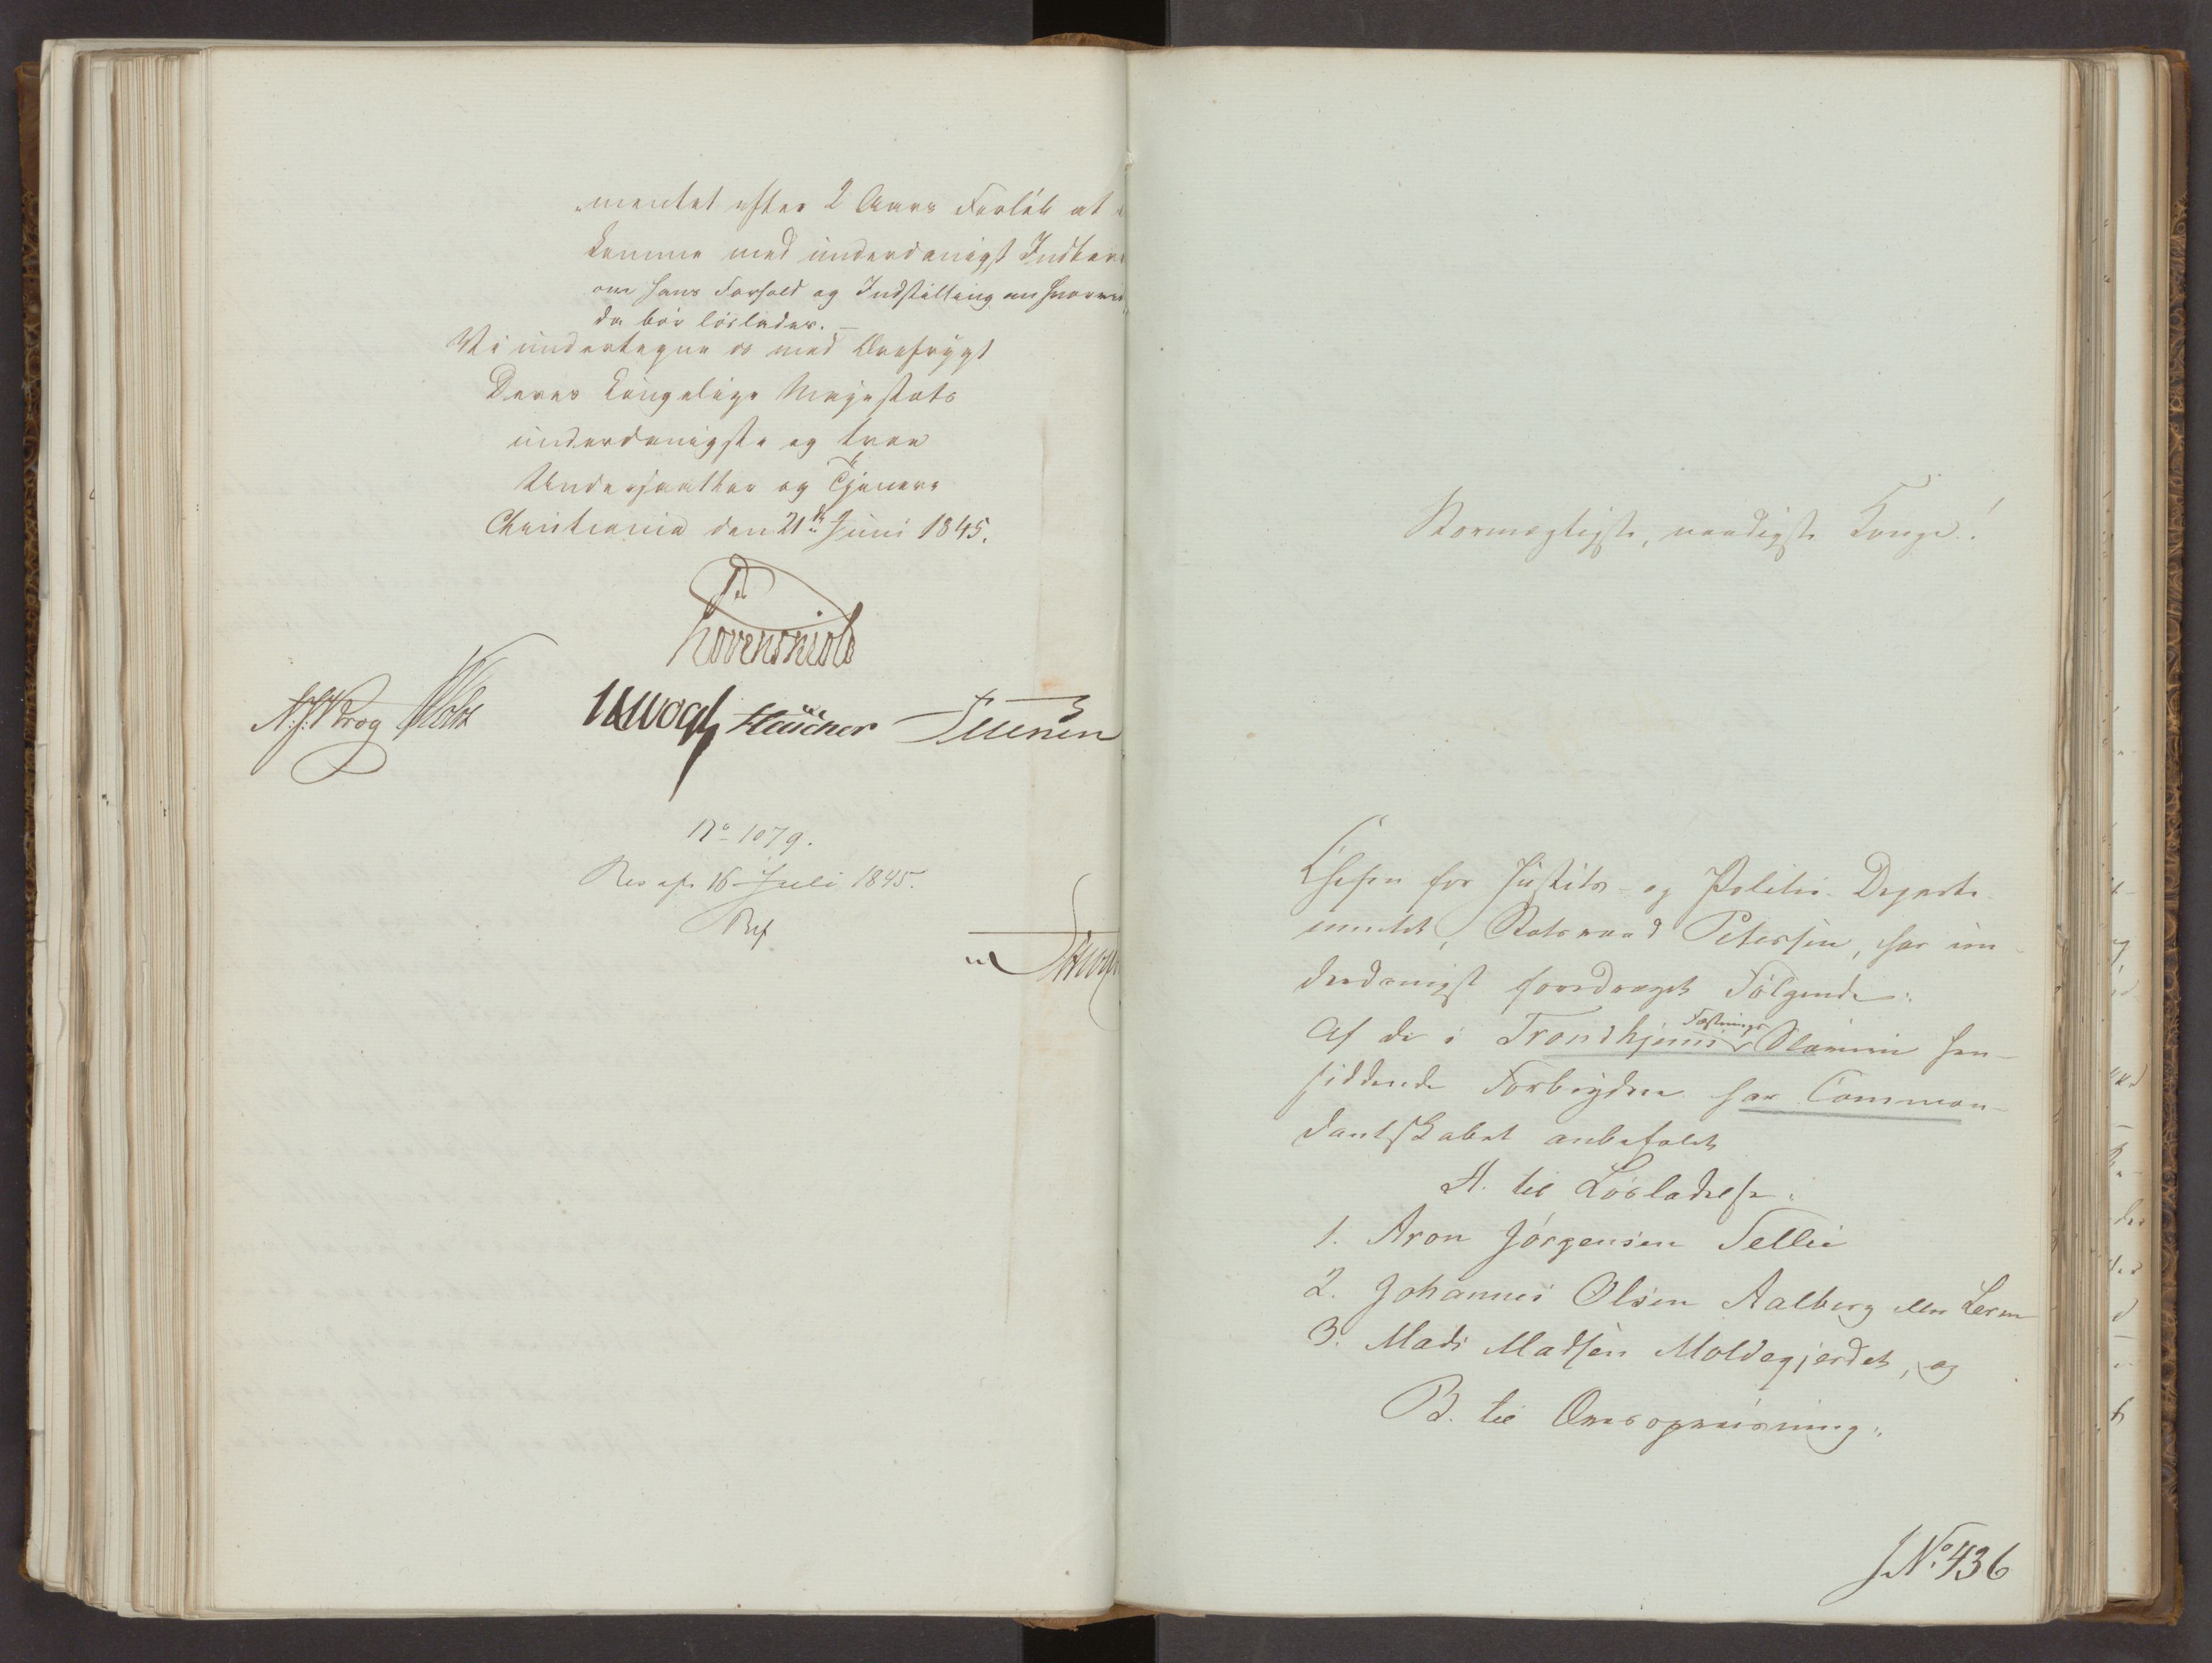 „mentet efter 2 Aars Forløb at
komme med underdanigst Indbere
om hans Forhold og Indstilling om hvorvid
da bør løslades. —
Vi undertegne os med Ærefrygt
Deres Kongelige Majestæts
underdanigste og troe
Undersaatter og Tjenere
Christiania den 21de Juni 1845.
Løvenskiold
Krog Holst Vogt
No 1079.
Res af 16 Juli 1845.
Stormægtigste, naadigste Konge!
Chefen for Justits- og Politie-Departe-
mentet, Statsraad Petersen, har un-
derdanigst foredraget Følgende:
Af de i Trondhjems Fæstnings Slaverie hen-
siddende Forbrydere har Comman-
dantskabet anbefalet
A. til Løsladelse:
1. Aron Jørgensen Tellie
2. Johannes Olsen Aalberg eller Leren
3. Mads Madsen Moldegjerdet, og
B. til Omsopreisning:
J.No. 436